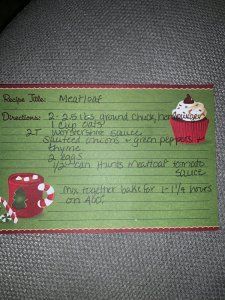 Recipe Title: Meatloaf
Directions: 2-2.5 lbs ground chuck, hamburger
1 cup oats
2T Worstershire sauce
Sauteed onions + green peppers +
thyme
2 eggs
1/2 can Hunts meatloaf tomato
sauce
Mix together bake for 1-1 1/4 hours
on 400°